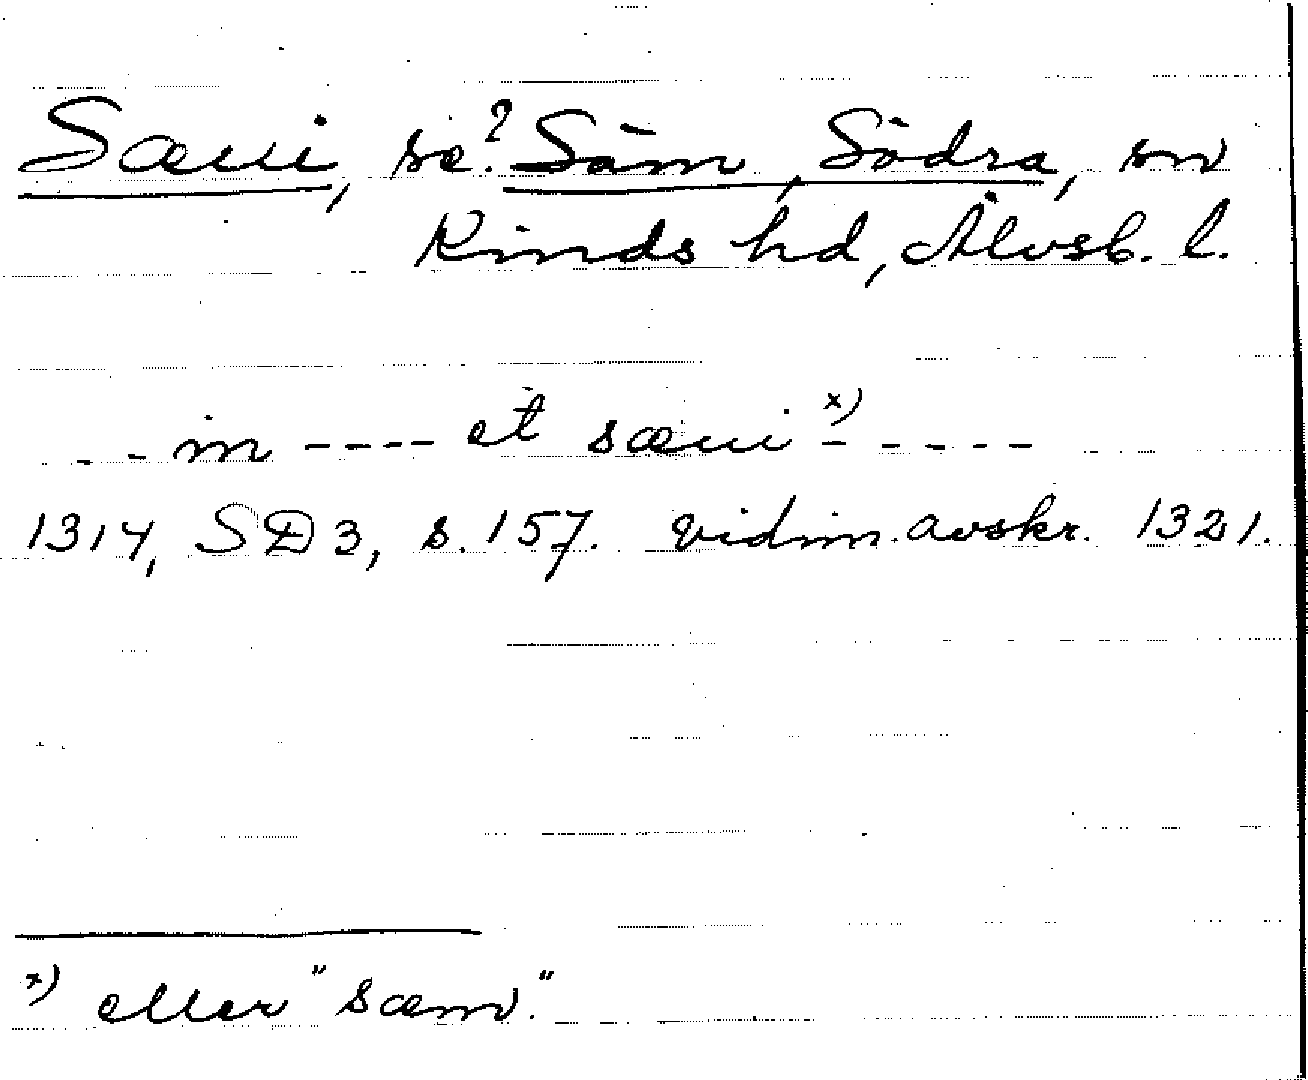 Sæui, se? Säm, Södra, sn
Kinds hd, Älvsb. l.
--- in ---- et sæui x) -----
1314, SD 3, s. 157. vidim. avskr. 1321.
x) eller "sæm."